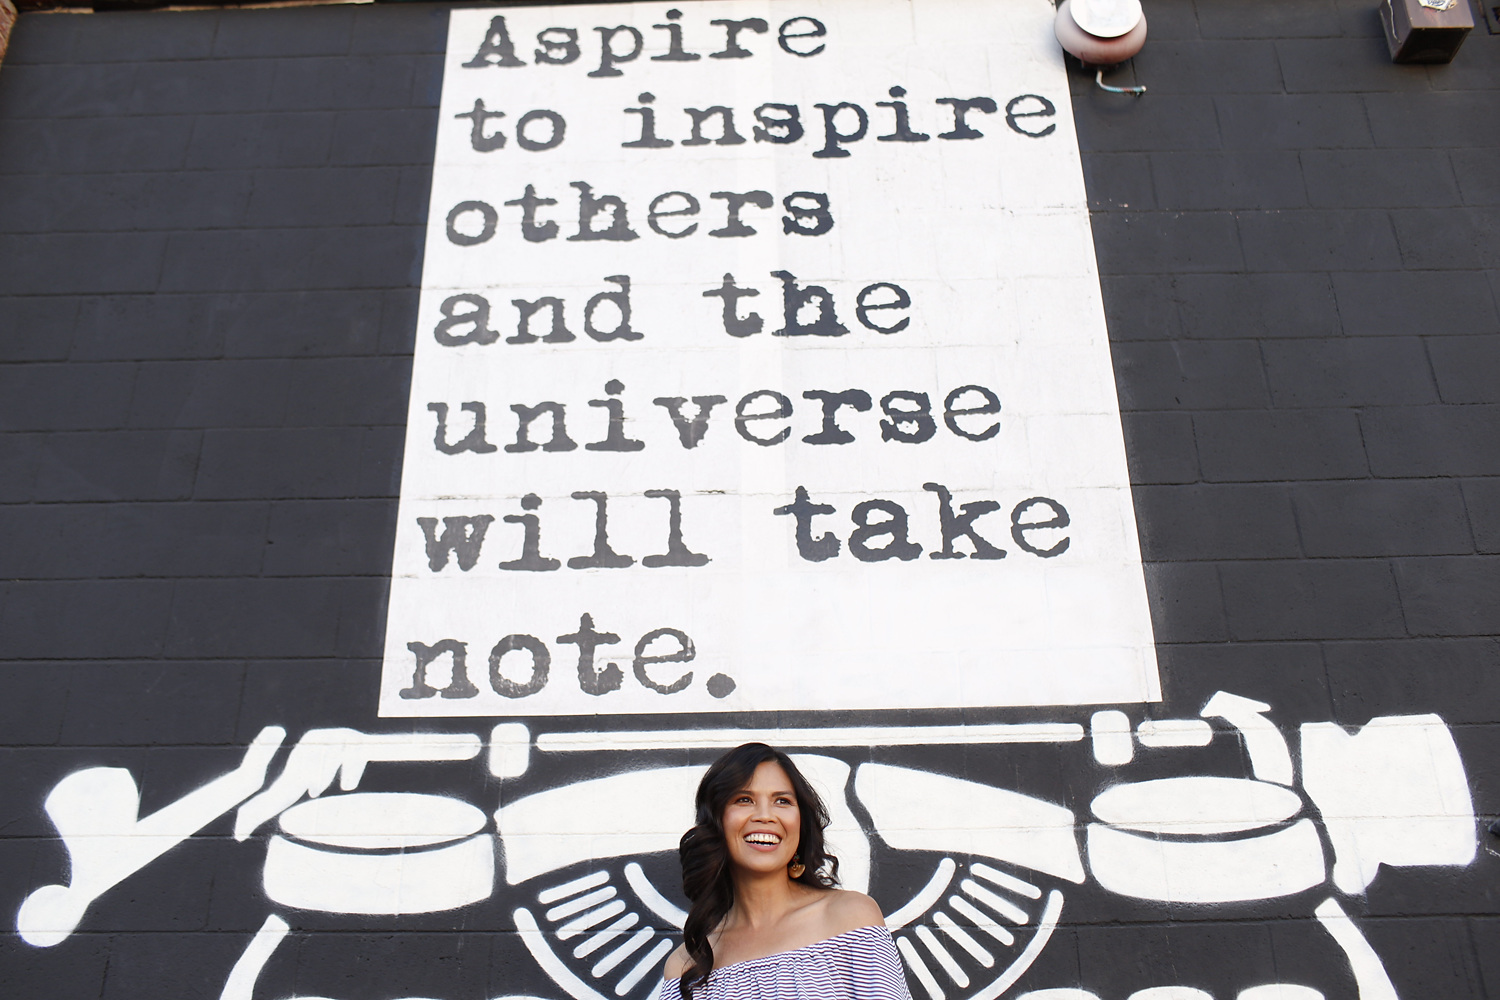 Aspire
to inspire
others
and the
universe
will take
note.